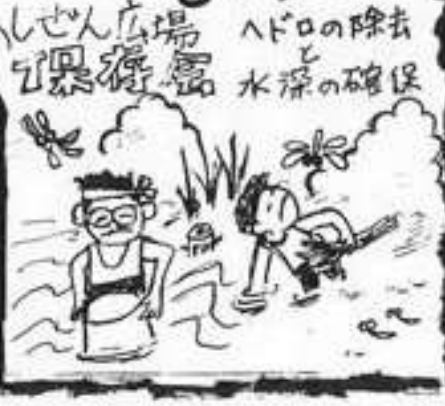 しぜん広場
保存会
ヘドロの除去
と
水深の確保